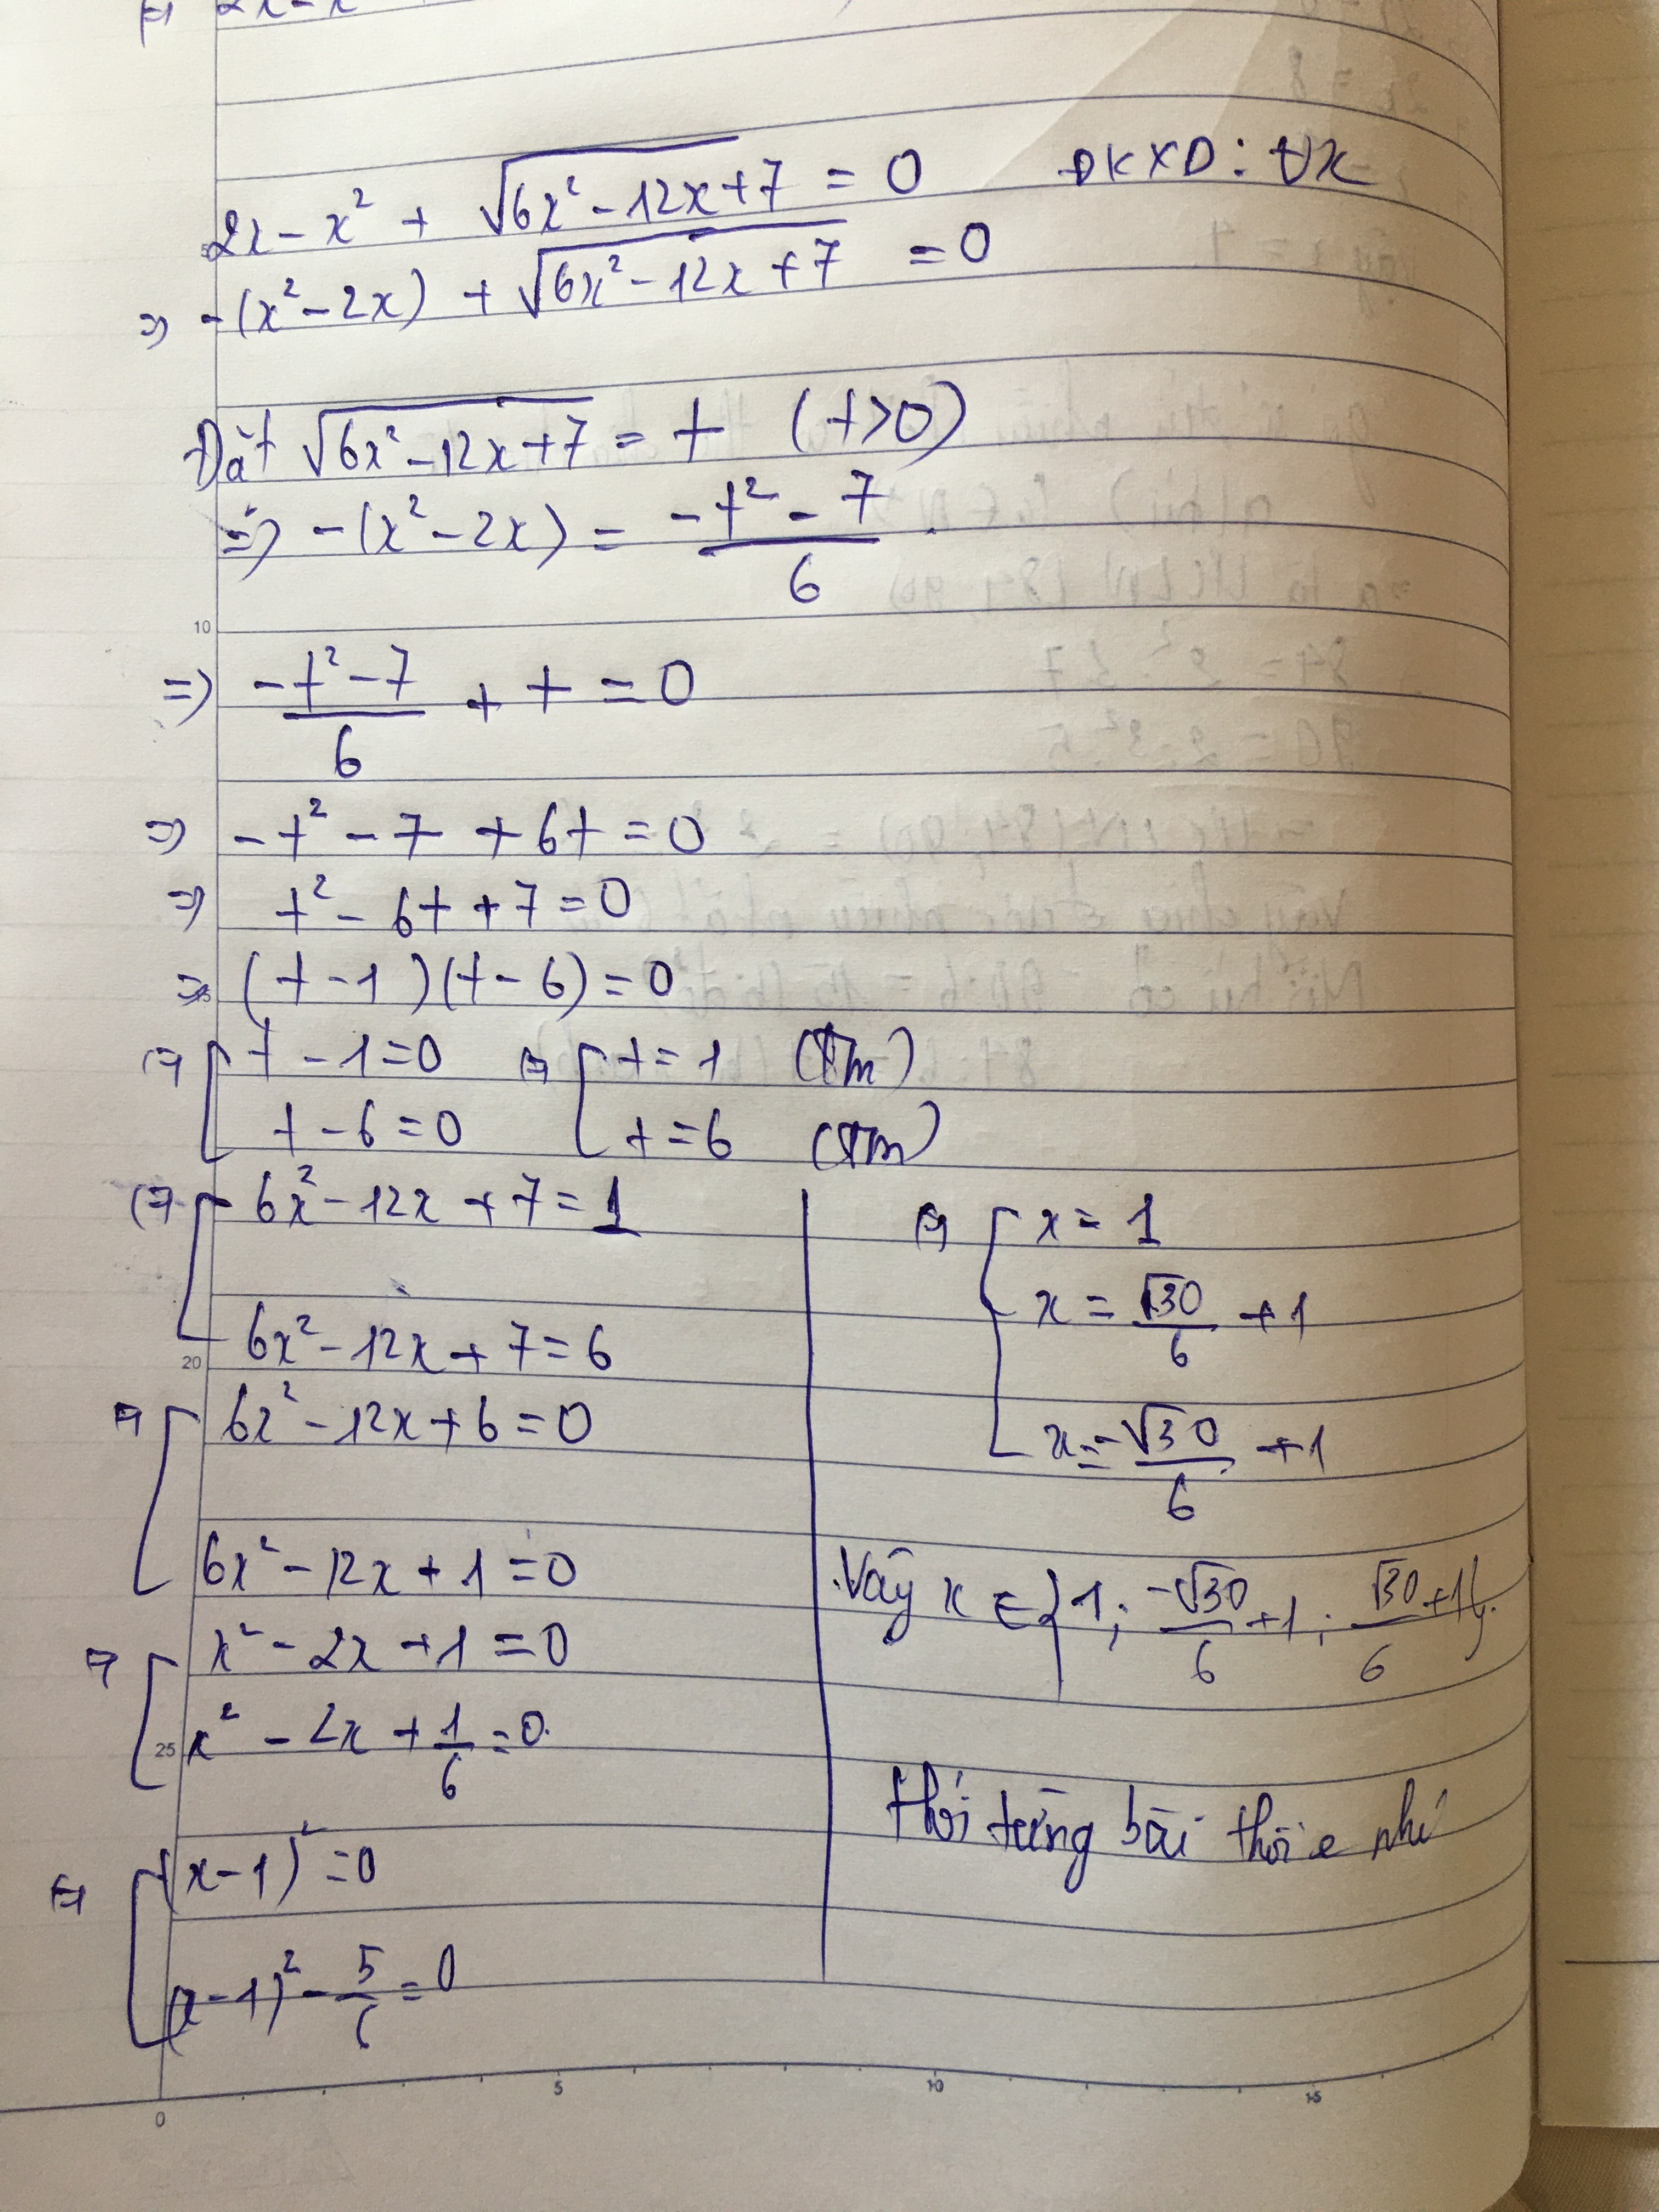 2x - x² + √(6x² - 12x + 7) = 0 ĐKXĐ: ∀x
=> -(x² - 2x) + √(6x² - 12x + 7) = 0
Đặt √(6x² - 12x + 7) = t (t>0)
=> -(x² - 2x) = (-t² - 7)/6
=> (-t² - 7)/6 + t = 0
=> -t² - 7 + 6t = 0
=> t² - 6t + 7 = 0
=> (t - 1)(t - 6) = 0
<=> [ t - 1 = 0 <=> [ t = 1 (tm)
t - 6 = 0 t = 6 (tm)
<=> [ 6x² - 12x + 7 = 1
6x² - 12x + 7 = 6
<=> [ 6x² - 12x + 6 = 0
6x² - 12x + 1 = 0
<=> [ x² - 2x + 1 = 0
x² - 2x + 1/6 = 0
<=> [ (x - 1)² = 0
(x - 1)² - 5/6 = 0
<=> [ x = 1
x = √30/6 + 1
x = -√30/6 + 1
Vậy x ∈ {1; -√30/6 + 1; √30/6 + 1}.
Hỏi từng bài thôi e nhé
10
20
25
0 5 10 15